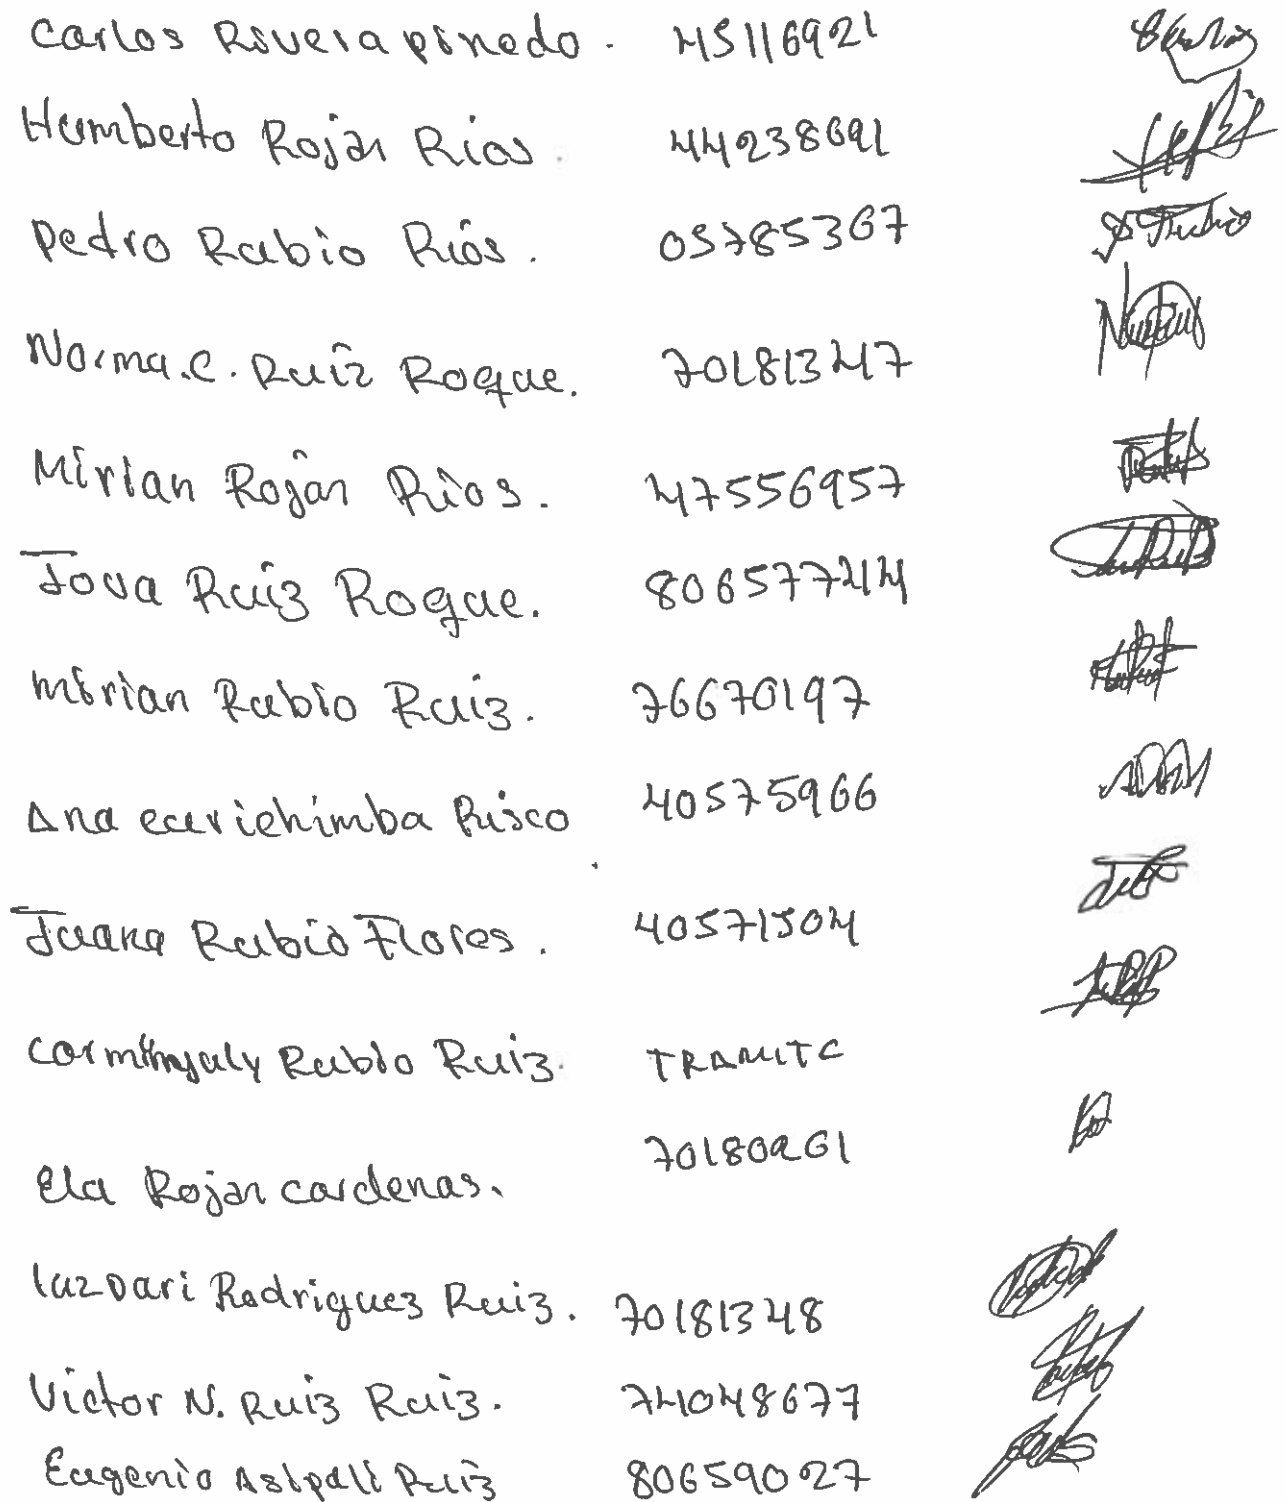 Carlos Rivera pinedo. 45116921
Humberto Rojas Rios. 44238691
Pedro Rubio Rios. 05785367
Norma.C. Ruiz Roque. 70181347
Mirian Rojas Rios. 47556957
Jova Ruiz Roque. 80657744
Mirian Rubio Ruiz. 76670197
Ana curichimba Risco 40575966
Juana Rubio Flores. 40571504
Rubio Ruiz. TRAMITE
Ela Rojas cardenas. 70180261
luzDari Rodriguez Ruiz. 70181348
Victor N. Ruiz Ruiz. 74048677
Eugenio Asipali Ruiz 80659027